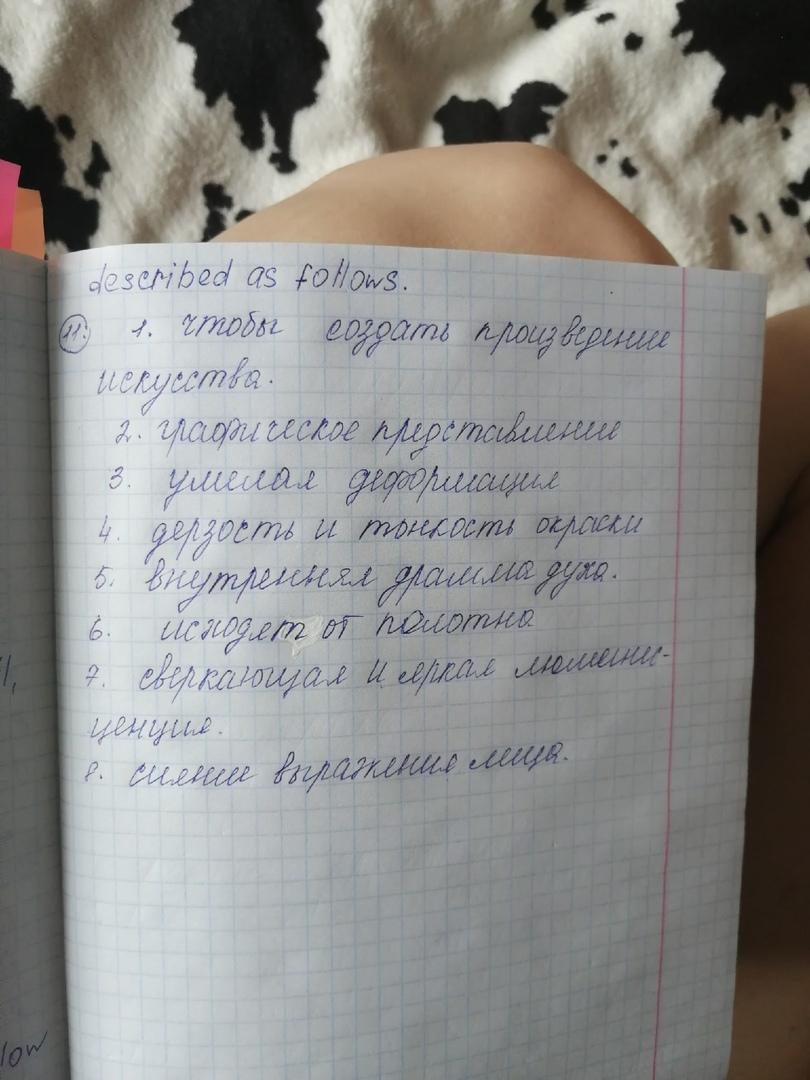 described as follows.
11. 1. чтобы создать произведение
искусства.
2. графическое представление
3. умелая деформация
4. дерзость и тонкость окраски
5. внутренняя драмма духа.
6. исходят от полотна
7. сверкающая и яркая люмени-
ценция.
8. сияние выражения лица.
low